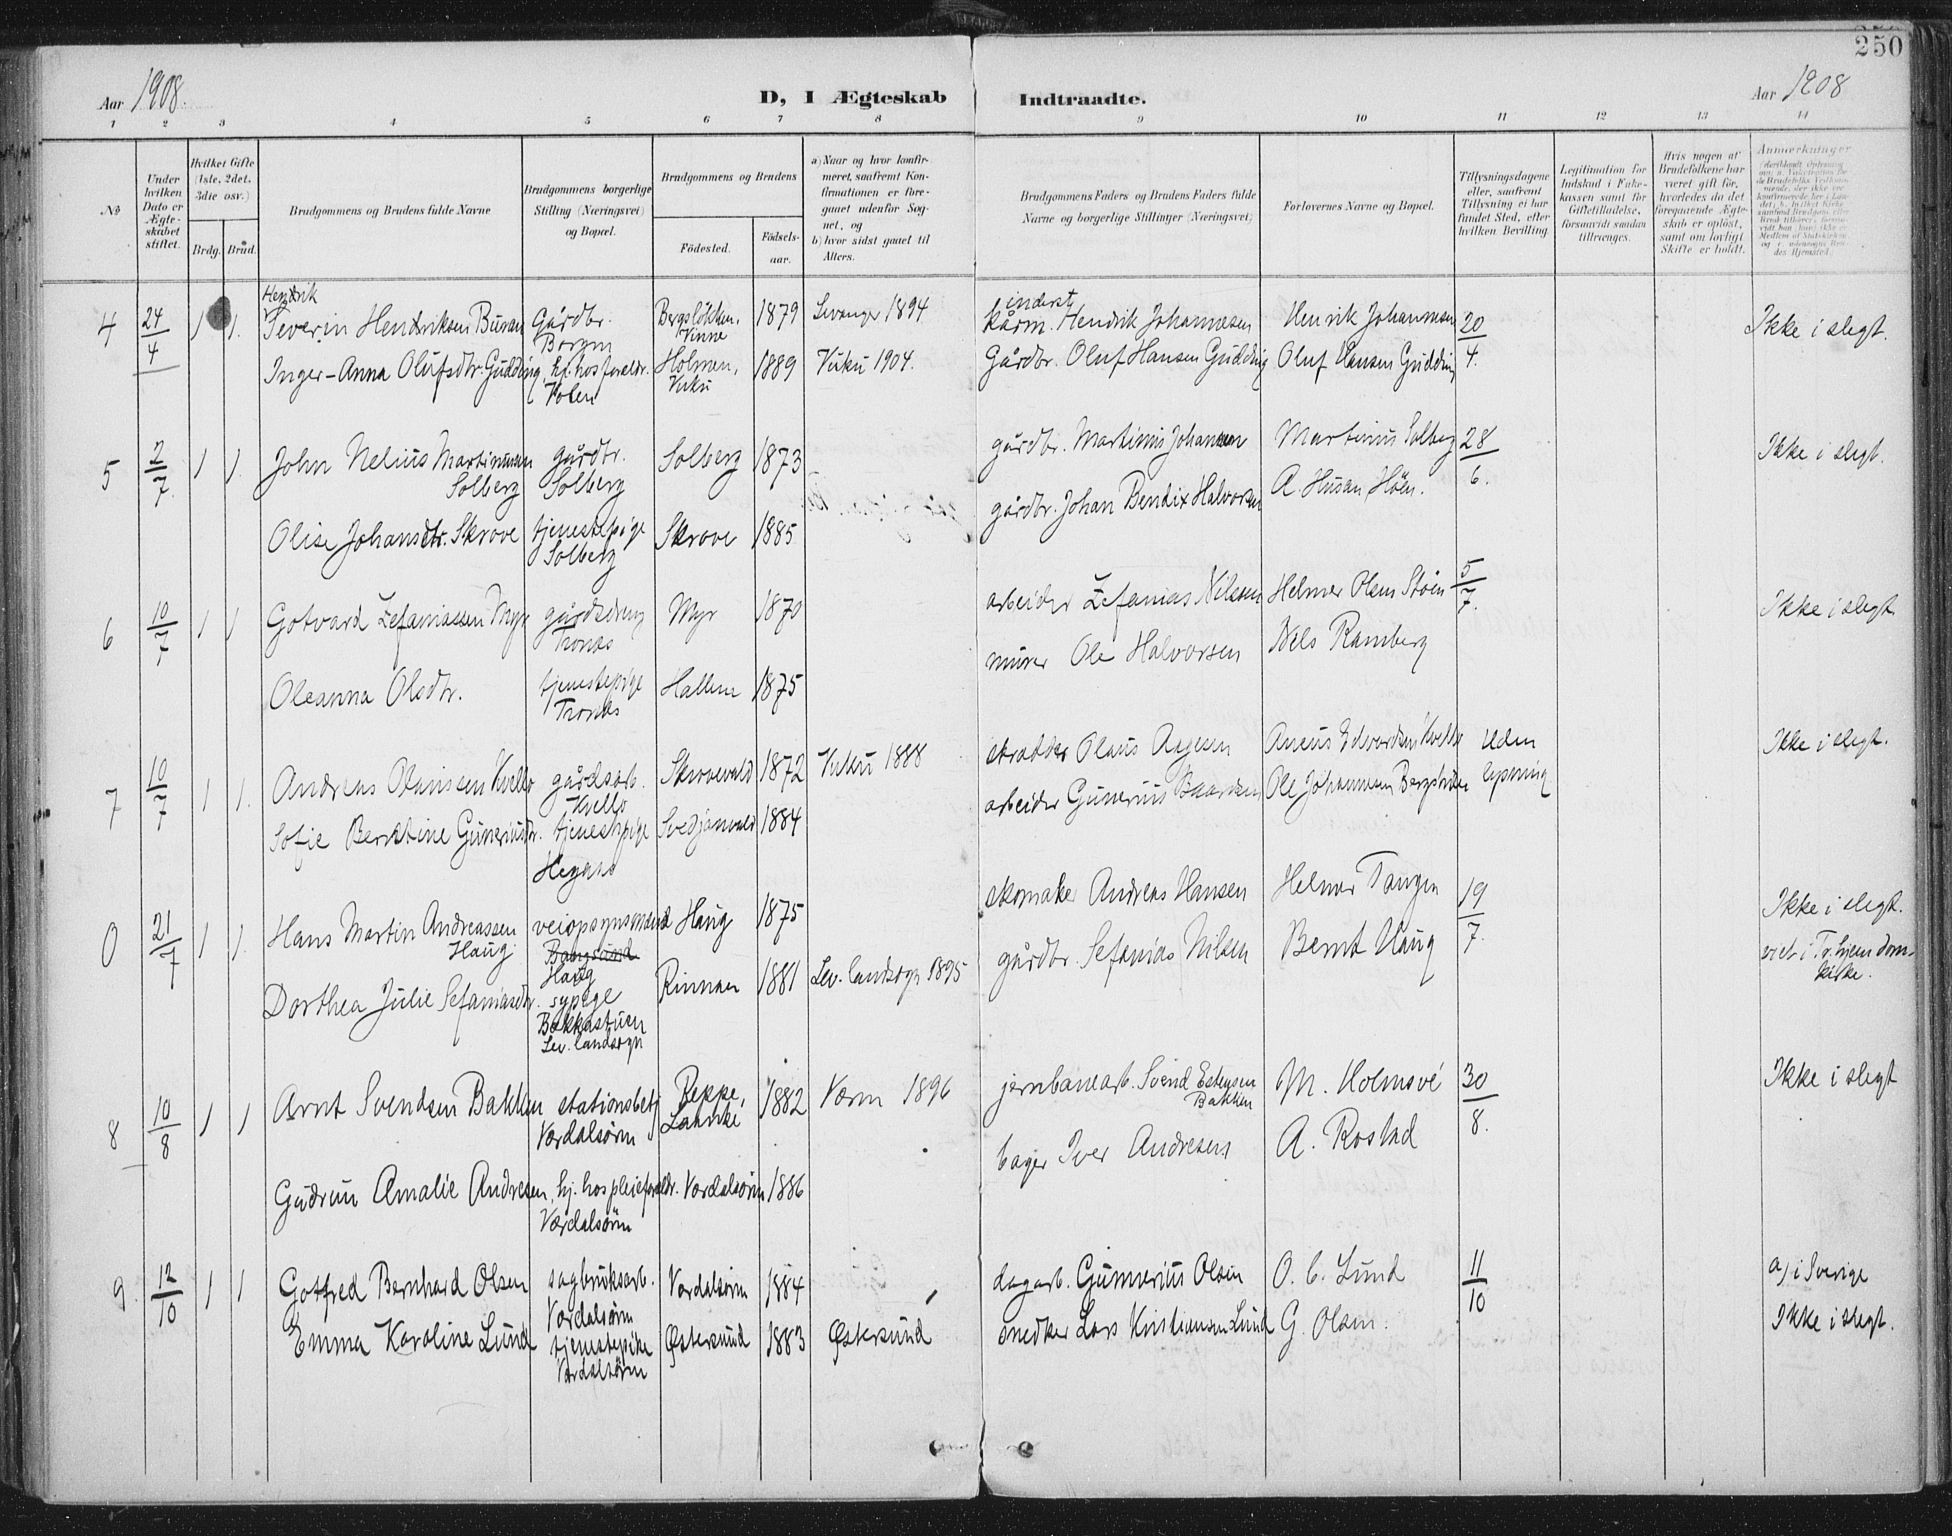 250
Aar 1908.
D, I Ægteskab Indtraadte.
Aar 1908
1 2 3 4 5 6 7 8 9 10 11 12 13 14
No
Under hvilken Dato er Ægteskabet stiftet.
Hvilket Gifte (1ste, 2det, 3die osv.)
Brdg. Brud.
Brudgommens og Brudens fulde Navne
Brudgommens borgerlige Stilling (Næringsvei) og Bopæl.
Brudgommens og Brudens
Fødested.
Fødsels-aar.
a) Naar og hvor konfirmeret, saafremt Konfirmationen er foregaaet udenfor Sognet, og
b) hvor sidst gaaet til Alters.
Brudgommens Faders og Brudens Faders fulde Navne og borgerlige Stillinger (Næringsvei)
Forlovernes Navne og Bopæl.
Tillysningsdagene eller, saafremt Tillysning ei har fundet Sted, efter hvilken Bevilling.
Legitimation for Indskud i Enkekassen samt for Giftetilladelse, forsaavidt saadan tiltrænges.
Hvis nogen af Brudefolkene har været gift før, hvorledes da det foregaaende Ægteskab er opløst, samt om lovligt Skifte er holdt.
Anmærkninger
4 24/4 1 1. Hendrik
Severin Hendriksen Buran Gårdbr. Borgen Bergsløkken, Vinne 1879 Levanger 1894 inderst
kårm. Hendrik Johannesen Henrik Johannesen 20/4. Ikke i slegt.
Inger-Anna Olufsdtr. Gudding, hj. hos foreldr. Volen Holmen, Vuku 1889 Vuku 1904. Gårdbr. Oluf Hansen Gudding Oluf Hansen Gudding
5 2/7. 1 1. John Nelius Martinusen Solberg gårdbr. Solberg Solberg 1873 gårdbr. Martinus Johansen Martinus Solberg 28/6. Ikke i slegt.
Olise Johansdtr. Skrove tjenestepige Solberg Skrove 1885 gårdbr. Johan Bendix Halvorsen A. Husan
6 10/7 1 1 Gotvard Zefaniassen Myr gårdsdreng Trones Myr 1870 arbeider Zefanias Nilsen Helmer Olsen Støen 5/7. Ikke i slegt
Oleanna Olsdtr. tjenestepige Trones Hallem 1875 murer Ole Halvorsen Nils Ramberg
7 10/7 1 1. Andreas Olaussen Kvello gårdsarb. Kvello Skrovevald 1872 Vuku 1888 skrædder Olaus Aagesen Edvardsen Kvello Uden lysning Ikke i slegt.
Sofie Berntine Guneriusdtr. tjenestepige 1884 arbeider Gunerius Ole Johannesen
0 21/7 1 1. Hans Martin Andreassen Haug veiopsynsmand Bangsund Haug Haug 1875 skomaker Andreas Hansen Helmer Tangen 19/7. Ikke i slegt.
viet i Tr.hjem domkirke.
Dorthea Julie Sefaniasdtr. sypige Bakkastuen Lev. landsogn Rinnan 1881 Lev. landsogn 1895 gårdbr. Sefanias Nilsen Bernt Haug
8 10/8 1 1 Arnt Svendsen Bakken stationsbetj. Værdalsøren Reppe, Laanke 1882 Værn 1896 jernbanearb. Svend Estensen Bakken M. Holmsve 30/8. Ikke i slegt
Gudrun Amalie Andresen, hj. hos pleieforeldr. Værdalsøren Værdalsøren 1886 bager Iver Andresen A. Rostad
9 12/10 1 1 Gotfred Bernhard Olsen sagbruksarb. Værdalsøren Værdalsøren 1884 dagarb. Gunnerius Olsen O. C. Lund 11/10 a) i Sverige
Emma Karoline Lund tjenestepike Værdalsøren Østersund 1883 Østersund snedker Lars Kristiansen Lund G. Olsen. Ikke i slegt.